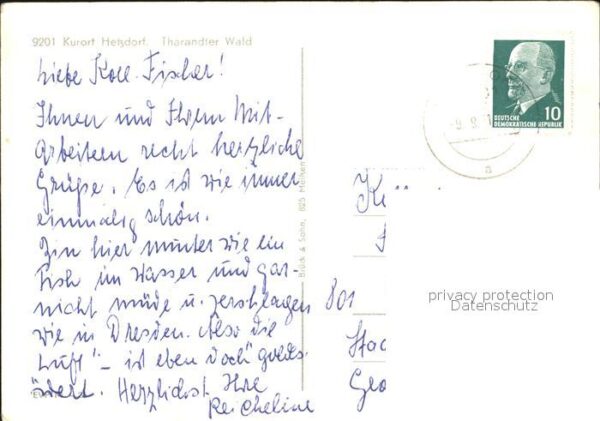 9201 Kurort Hetzdorf. Tharandter Wald
Liebe Koll. Fischer!
Ihnen und Ihren Mit-
arbeitern recht herzliche
Grüße. Es ist wie immer
einmalig schön.
Bin hier munter wie ein
Fisch im Wasser und gar-
nicht müde u. zerschlagen
wie in Dresden. Also die
"Luft" - ist eben doch "golds
wert. Herzlichst Ihre
Reicheline
Brück & Sohn, 825 Meissen
10
DEUTSCHE
DEMOKRATISCHE REPUBLIK
-9.8.
a
801
privacy protection
Datenschutz
Geo